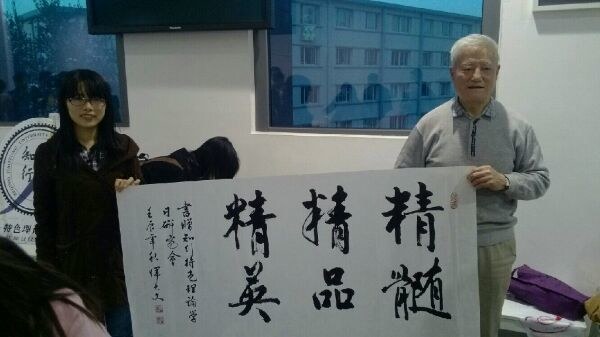 精髓
精品
精英
書贈知行特色理論學
习研究会
壬辰年秋
知行
特色理